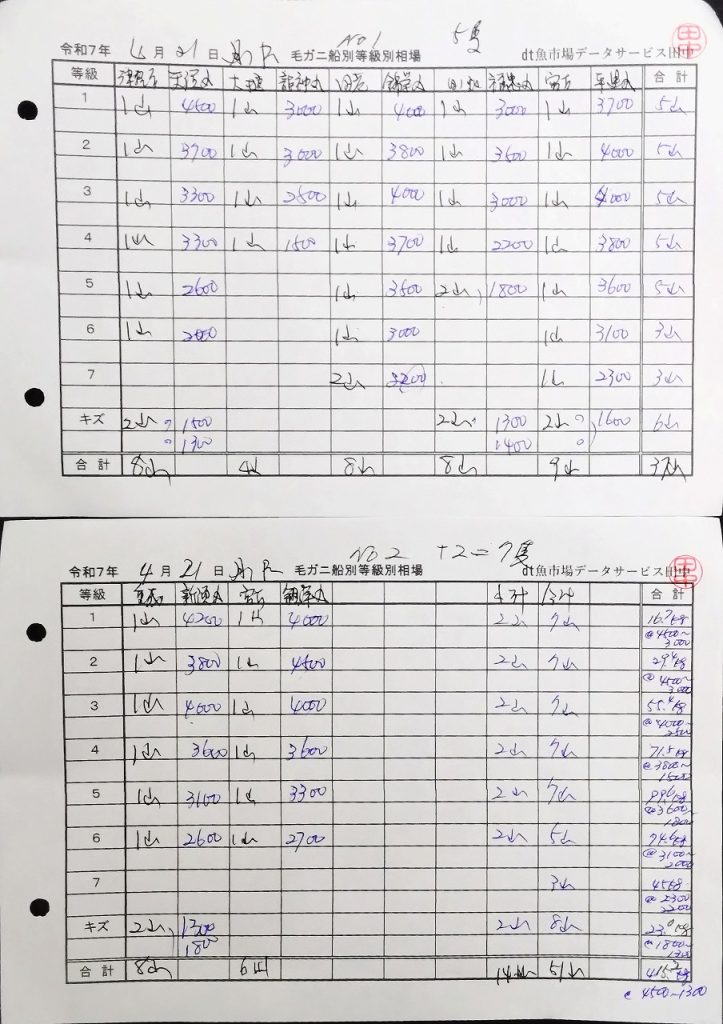 No 1 5隻
令和7年 4月21日 毛ガニ船別等級別相場 dt魚市場データサービス田中
等級 合計
1 1山 4500 1山 3000 1山 4000 1山 3000 1山 3700 5山
2 1山 3700 1山 3000 1山 3800 1山 3500 1山 4000 5山
3 1山 3300 1山 2500 1山 4000 1山 3000 1山 4000 5山
4 1山 3300 1山 1500 1山 3700 1山 2200 1山 3800 5山
5 1山 2600 1山 3500 2山 1800 1山 3600 5山
6 1山 2000 1山 3000 1山 3100 3山
7 2山 2200 1山 2300 3山
キズ 2山 1500 2山 1300 2山 1600 6山
1300 1400
合計 8山 4山 8山 8山 9山 37山
No 2 +2=7隻
令和7年 4月21日 毛ガニ船別等級別相場 dt魚市場データサービス田中
等級 小計 合計 合計
1 1山 4200 1山 4000 2山 7山 16.7kg
@4500~
3000
2 1山 3800 1山 4500 2山 7山 29.4kg
@4500~
3000
3 1山 4000 1山 4000 2山 7山 55.4kg
@4000~
2500
4 1山 3600 1山 3600 2山 7山 71.5kg
@3800~
1500
5 1山 3100 1山 3300 2山 7山 99.6kg
@3600~
1800
6 1山 2600 1山 2700 2山 5山 74.6kg
@3100~
2000
7 3山 45kg
@2300
2200
キズ 2山 1300 2山 8山 23.0kg
1800 @1800~
1300
合計 8山 6山 14山 51山 415.2kg
@4500~1300